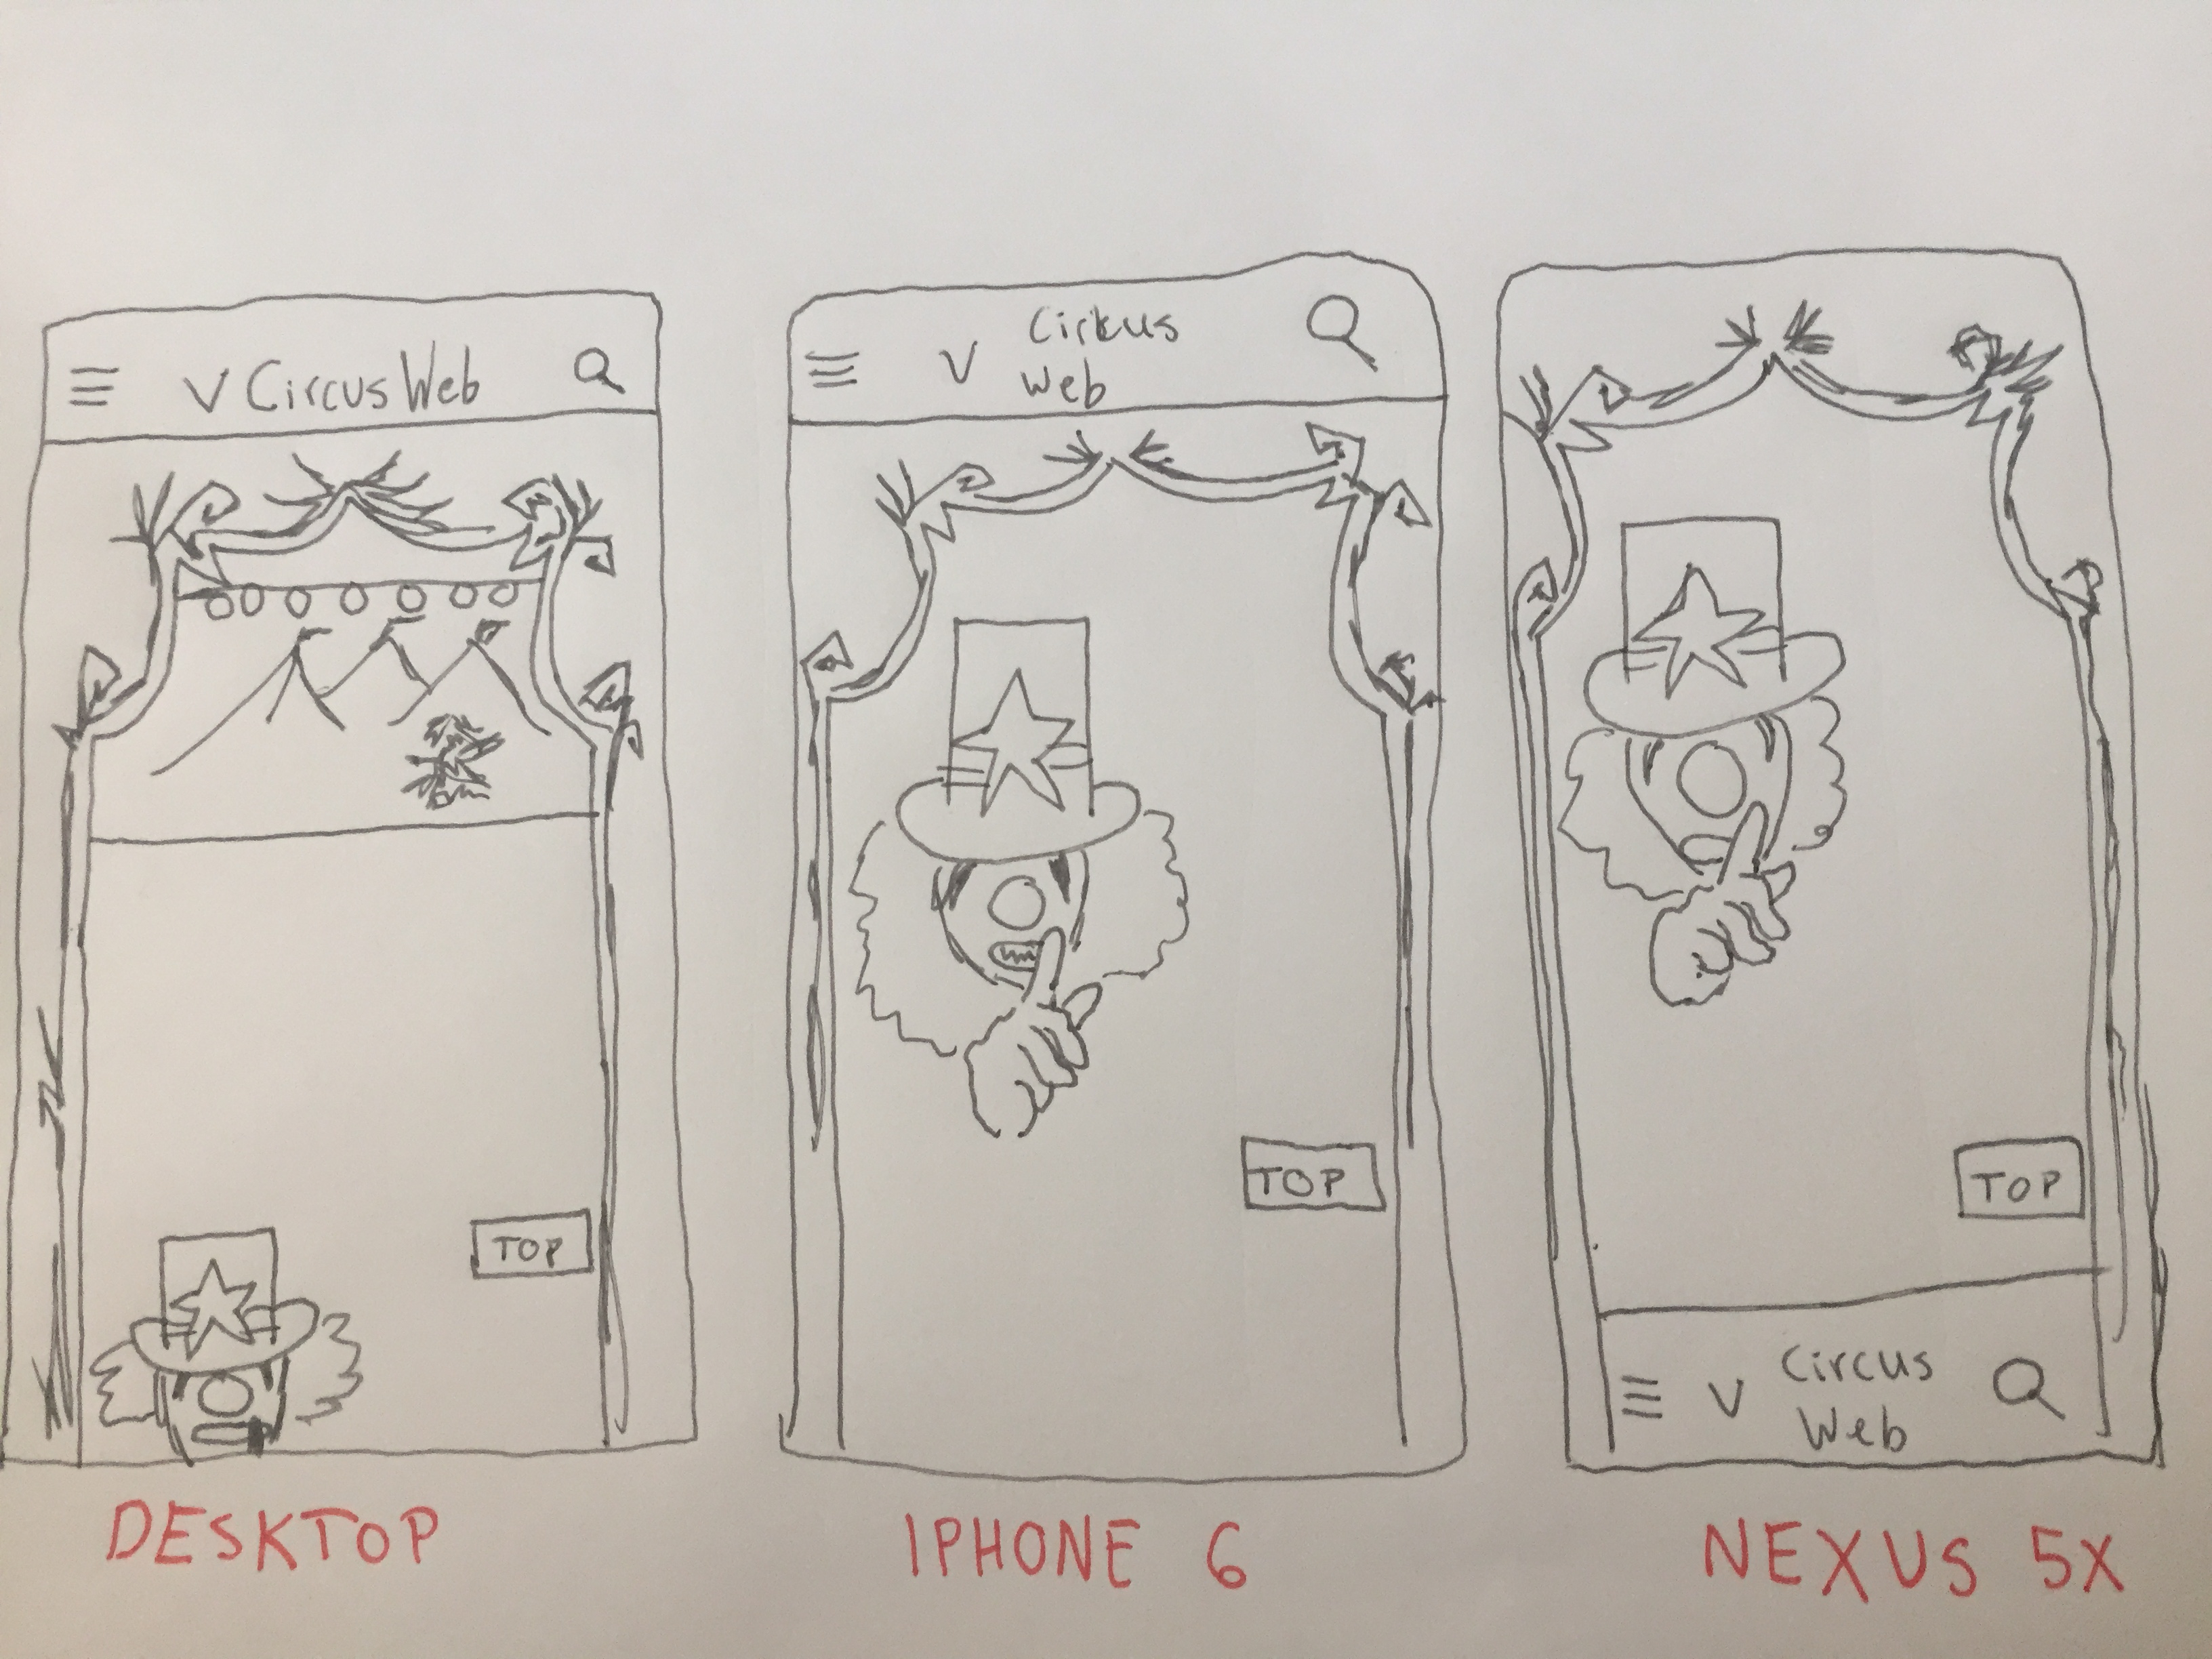 V Circus Web
TOP
DESKTOP
V Cirkus
Web
TOP
IPHONE 6
TOP
V Circus
Web
NEXUS 5X